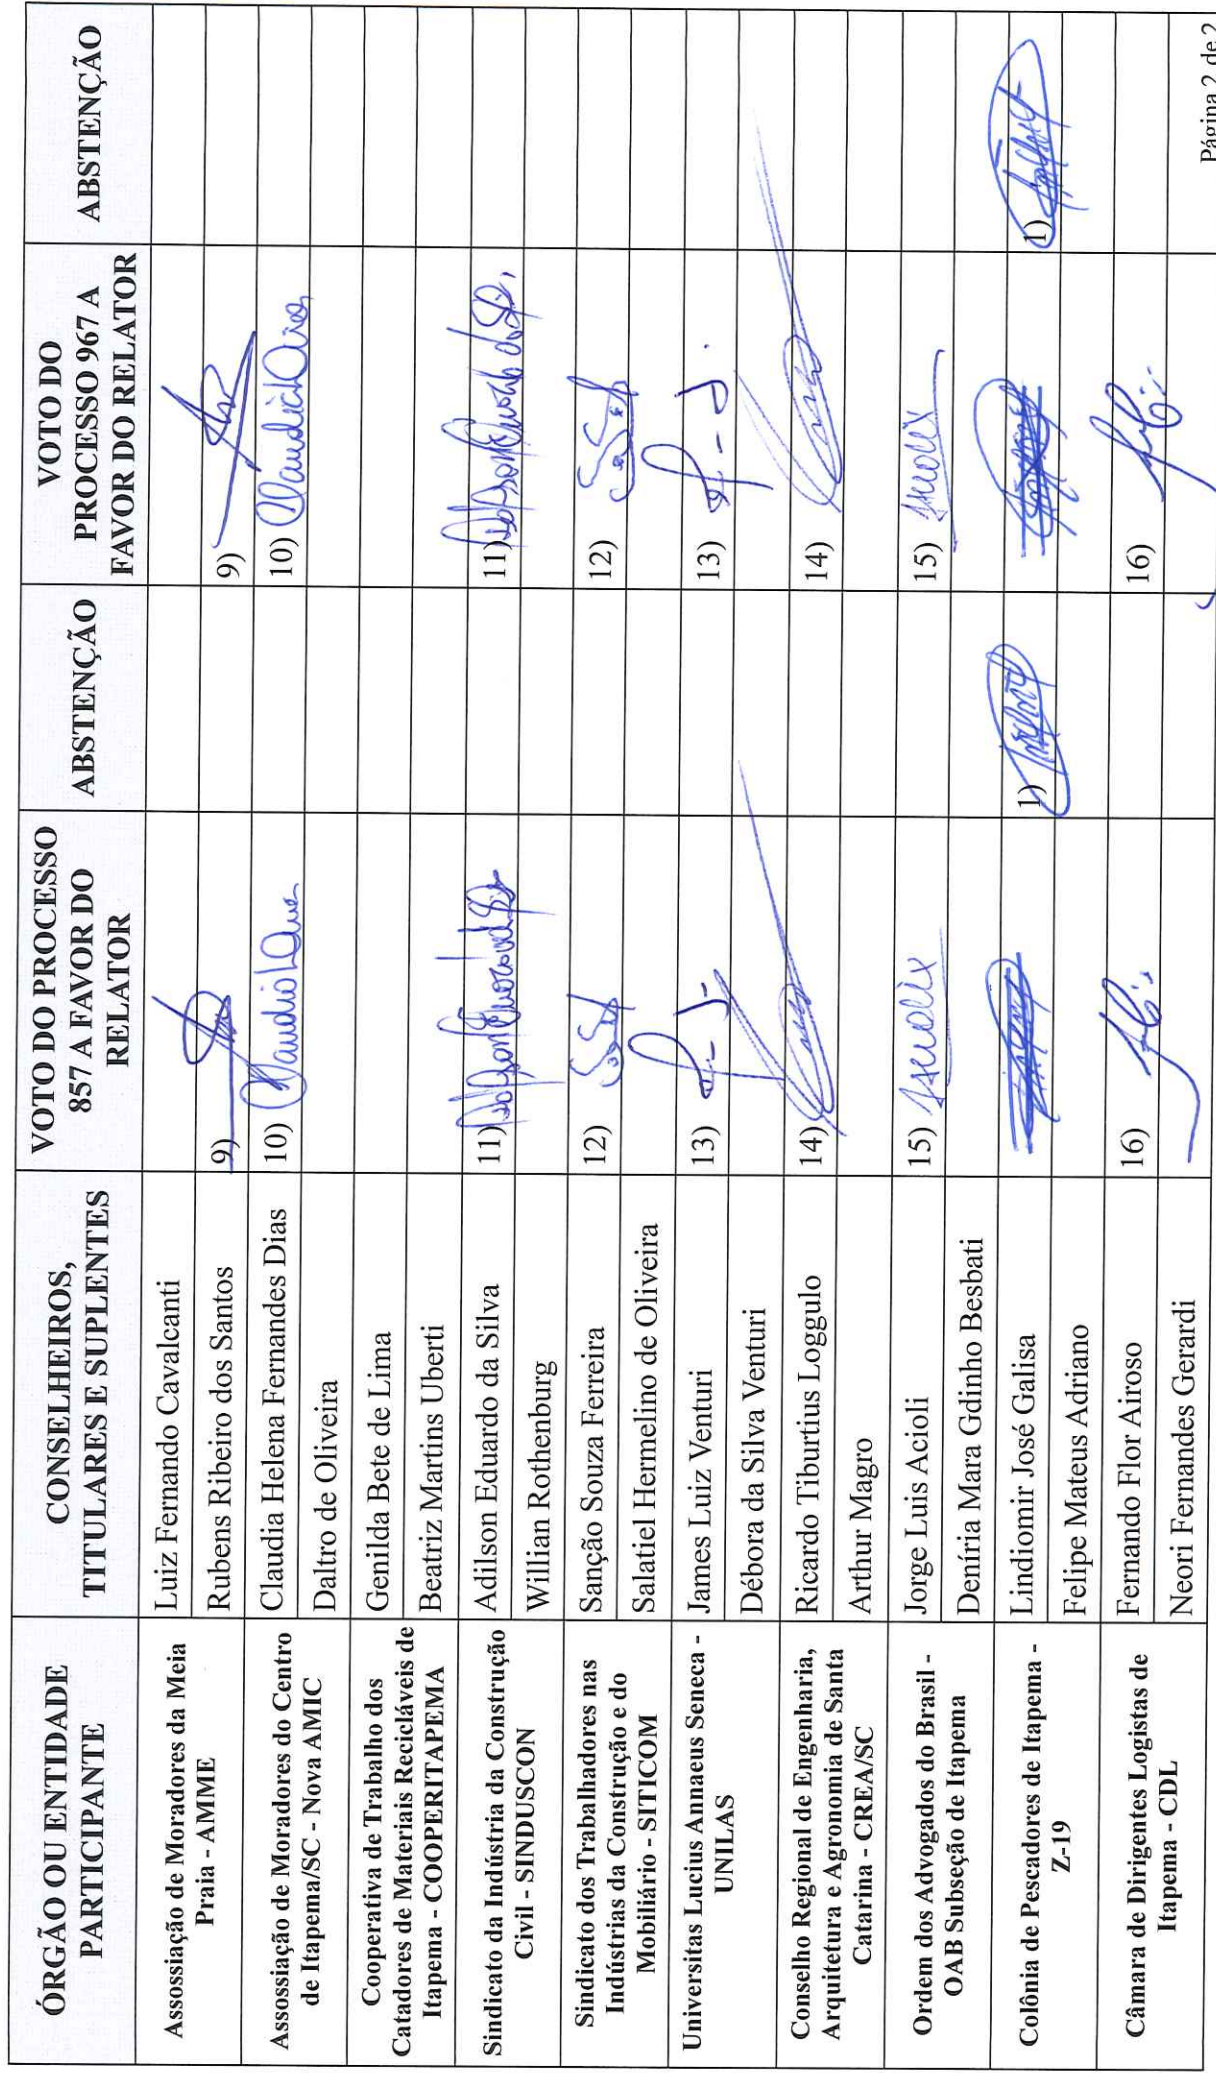 ÓRGÃO OU ENTIDADE
PARTICIPANTE
CONSELHEIROS,
TITULARES E SUPLENTES
VOTO DO PROCESSO
857 A FAVOR DO
RELATOR
ABSTENÇÃO
VOTO DO
PROCESSO 967 A
FAVOR DO RELATOR
ABSTENÇÃO
Assossiação de Moradores da Meia
Praia - AMME
Luiz Fernando Cavalcanti
Rubens Ribeiro dos Santos
9)
9)
Assossiação de Moradores do Centro
de Itapema/SC - Nova AMIC
Claudia Helena Fernandes Dias
10)
10)
Daltro de Oliveira
Cooperativa de Trabalho dos
Catadores de Materiais Recicláveis de
Itapema - COOPERITAPEMA
Genilda Bete de Lima
Beatriz Martins Uberti
Sindicato da Indústria da Construção
Civil - SINDUSCON
Adilson Eduardo da Silva
11)
11)
Willian Rothenburg
Sindicato dos Trabalhadores nas
Indústrias da Construção e do
Mobiliário - SITICOM
Sanção Souza Ferreira
12)
12)
Salatiel Hermelino de Oliveira
Universitas Lucius Annaeus Seneca -
UNILAS
James Luiz Venturi
13)
13)
Débora da Silva Venturi
Conselho Regional de Engenharia,
Arquitetura e Agronomia de Santa
Catarina - CREA/SC
Ricardo Tiburtius Loggulo
14)
14)
Arthur Magro
Ordem dos Advogados do Brasil -
OAB Subseção de Itapema
Jorge Luis Acioli
15)
15)
Deníria Mara Gdinho Besbati
Colônia de Pescadores de Itapema -
Z-19
Lindiomir José Galisa
1)
1)
Felipe Mateus Adriano
Câmara de Dirigentes Logistas de
Itapema - CDL
Fernando Flor Airoso
16)
16)
Neori Fernandes Gerardi
Página 2 de 2